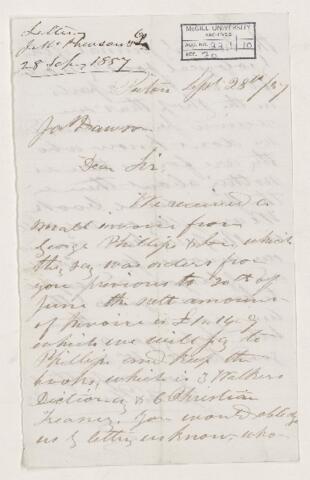 Letter
28 Sep, 1857
McGILL UNIVERSITY
ARCHIVES
ACC. NO.
REF.
Pictou Sept 28th /57
Jas Dawson
Dear Sir
We received a
small invoice from
George Phillips & Son, which
they say was orders from
you previous to 30th of
June the nett amount
of Invoice is £1.14.9
which we will pay to
Phillips and keep the
books, which is 3 Walkers
Dictionary & 6 Christian
Treasury. You would oblidge
us by letting us know, who